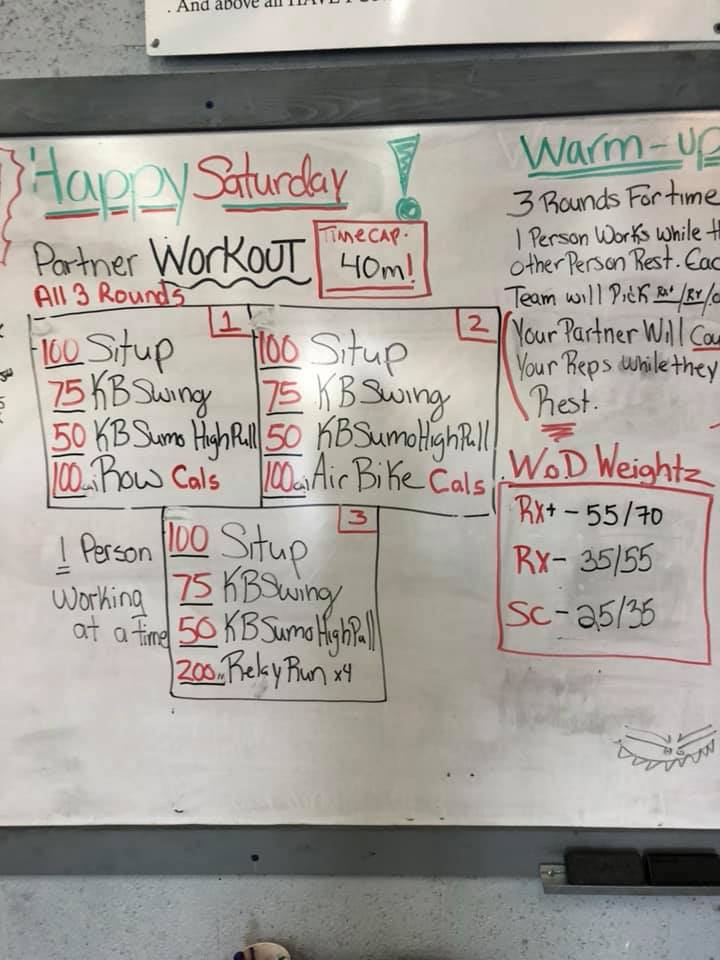 . And above all HAVE
Happy Saturday !
Partner WORKOUT
TIME CAP.
40m!
All 3 Rounds
1
100 Situp
75 KB Swing
50 KB Sumo High Pull
100cal Row Cals
2
100 Situp
75 KB Swing
50 KB Sumo High Pull
100cal Air Bike Cals
3
100 Situp
75 KB Swing
50 KB Sumo High Pull
200m Relay Run x4
1 Person
Working
at a time
Warm-up
3 Rounds For time
1 Person Works while
other Person Rest.
Team will Pick Rx+/Rx/
Your Partner Will
Your Reps while they
Rest.
WoD Weightz
Rx+ - 55/70
Rx - 35/55
SC - 25/35